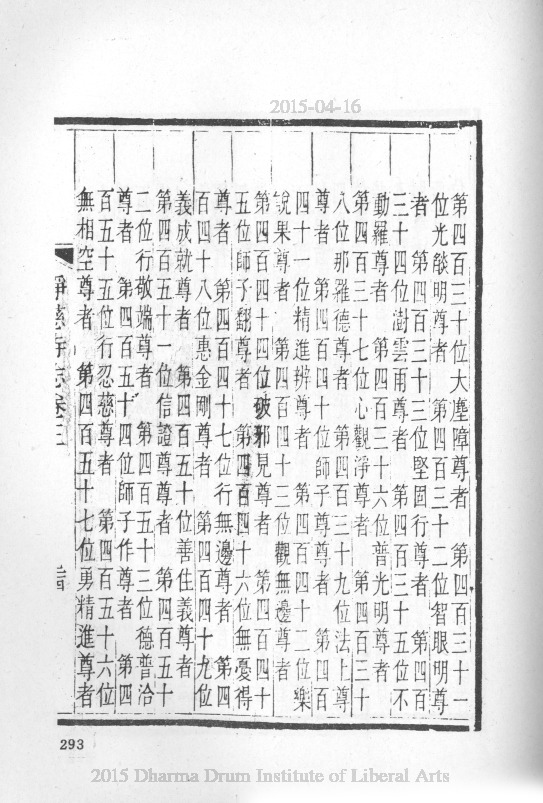 2015-04-16
第四百三十位大塵障尊者　第四百三十一
位光燄明尊者　第四百三十二位智眼明尊
者　第四百三十三位堅固行尊者　第四百
三十四位澍雲雨尊者　第四百三十五位不
動羅尊者　第四百三十六位普光明尊者
第四百三十七位心觀淨尊者　第四百三十
八位那羅德尊者　第四百三十九位法上尊
尊者　第四百四十位師子尊尊者　第四百
四十一位精進辨尊者　第四百四十二位樂
說果尊者　第四百四十三位觀無邊尊者
第四百四十四位破邪見尊者　第四百四十
五位師子翻尊者　第四百四十六位無憂得
尊者　第四百四十七位行無邊尊者　第四
百四十八位惠金剛尊者　第四百四十九位
義成就尊者　第四百五十位善住義尊者
第四百五十一位信證尊尊者　第四百五十
二位行敬端尊者　第四百五十三位德普洽
尊者　第四百五十四位師子作尊者　第四
百五十五位行忍慈尊者　第四百五十六位
無相空尊者　第四百五十七位勇精進尊者
淨慈寺志卷三
293
2015 Dharma Drum Institute of Liberal Arts